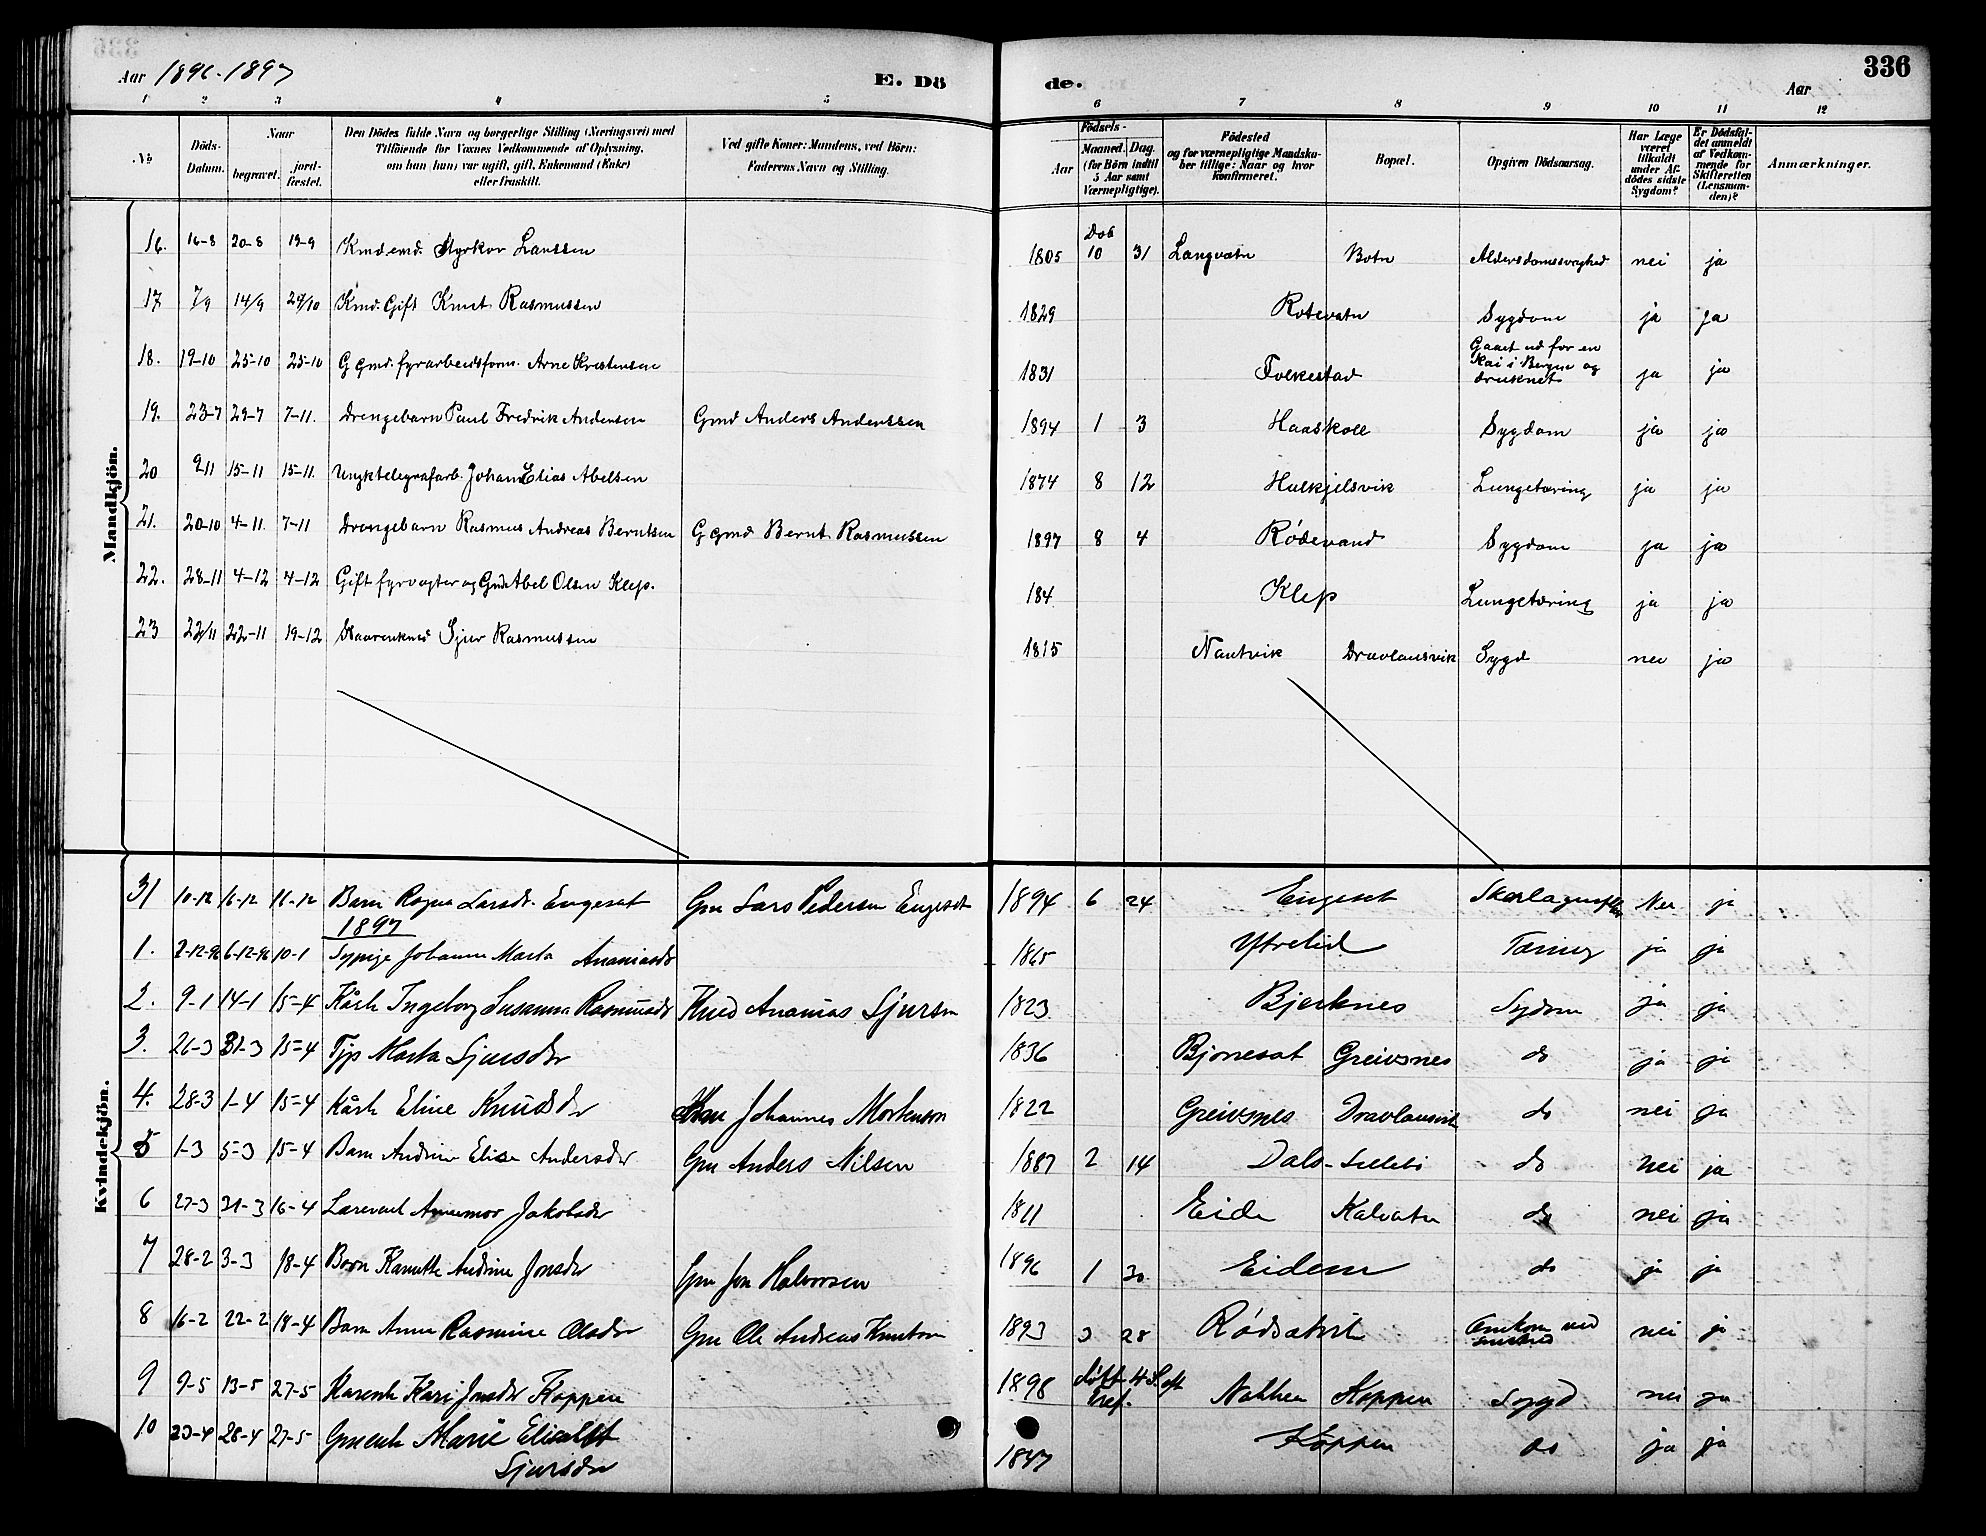 Aar 1896-1897
E. Dö
de.
336
Aar
1 2 3 4 5 6 7 8 9 10 11 12
№
Döds-Datum.
Naar
begravet.
jord-fæstet.
Den Dödes fulde Navn og borgerlige Stilling (Næringsvei) med
Tilföiende for Voxnes Vedkommende af Oplysning,
om han (hun) var ugift, gift, Enkemand (Enke)
eller fraskilt.
Ved gifte Koner: Mandens, ved Börn:
Faderens Navn og Stilling.
Födsels-
Aar
Maaned. Dag.
(for Börn indtil
5 Aar samt
Værnepligtige).
Födested
og for værnepligtige Mandska-
ber tillige: Naar og hvor
konfirmeret.
Bopæl.
Opgiven Dödsaarsag.
Har Læge
været
tilkaldt
under Af-
dödes sidste
Sygdom?
Er Dödsfal-
det anmeldt
af Vedkom-
mende for
Skifteretten
(Lensman-
den)?
Anmærkninger.
Mandkjön.
16. 16-8 20-8 19-9 Kmd. emd. Styrkor Larssen 1805 Døb 10 31 Langvatn Botn Aldersdomssvaghed nei ja
17 7/9 14/9 24/10 Kmd. Gift Knut Rasmussen 1829 Rotevatn Sygdom ja ja
18. 19-10 25-10 25-10 G gmd. fyrarbeidsform. Arne Kristensen 1831 Folkestad Gaaet ud for en
Kai i Bergen og
druknet ja ja
19. 23-7 29-7 7-11. Drengebarn Paul Fredrik Andersen Gmd Anders Anderssen 1894 1 3 Haaskoll Sygdom ja ja
20 9-11 15-11 15-11. Ungk telegrafarb. Johan Elias Abelsen 1874 8 12 Halkjelsvik Lungetæring ja ja
21. 20-10 4-11. 7-11 Drengebarn Rasmus Andreas Berntsen G gmd Bernt Rasmussen 1897 8 4 Rødevand Sygdom ja ja
22. 28-11 4-12 4-12 Gift fyrvogter og Gmd Abel Olsen Klep. 184 Klep Lungetæring ja ja
23 22/11 22-11 19-12 Kaarenkmd Sjur Rasmussen 1815 Nautvik Dravlausvik Sygd nei ja
Kvindekjön.
31 10-12 16-12 16-12 Barn Ragna Larsdr. Engeset Gm Lars Pedersen Engeset 1894 6 24 Engeset Skarlagensfeb Nei ja
1897
1. 2-12-96 6-12-96 10-1 Sypige Johanne Marta Ananiasdr 1865 Ytrelid Tæring ja ja
2. 9-1 14-1 15-4 Kårk Ingeborg Susanna Rasmusdr Kmd Ananias Sjursen 1823 Bjerknes Sydom ja ja
3. 26-3 31-3 15-4 Tjp Marta Sjursdr 1836 Bjoneset Greivsnes do ja ja
4. 28-3 1-4 15-4 Kårk Eline Knudsdr Johannes Mortenson 1822 Greivsnes Dravlausvik do nei ja
5 1-3 5-3 15-4 Barn Andrine Elise Andersdr Gm Anders Nilsen 1887 2 14 Dals-Lillebø do nei ja
6 27-3 31-3 16-4 Annemor Jakobsdr 1811 Eide Kalvatn do nei ja
7 28-2 3-3 18-4 Barn Kanutte Andrine Jonsdr Gm Jon Halvorsen 1896 1 30 Eidem do ja ja
8 16-2 22-2 18-4 Barn Anne Rasmine Olsdr Gm Ole Andreas Knutsen 1893 3 28 Rødsætvik Omkom ved nei ja
9 9-5 13-5 27-5 Karenk Kari Jonsdr Koppen 1898 Nakken Koppen Sygd nei ja
10 23-4 28-4 27-5 Gmenk Marie Elisabet
Sjursdr 1847 Koppen do ja ja